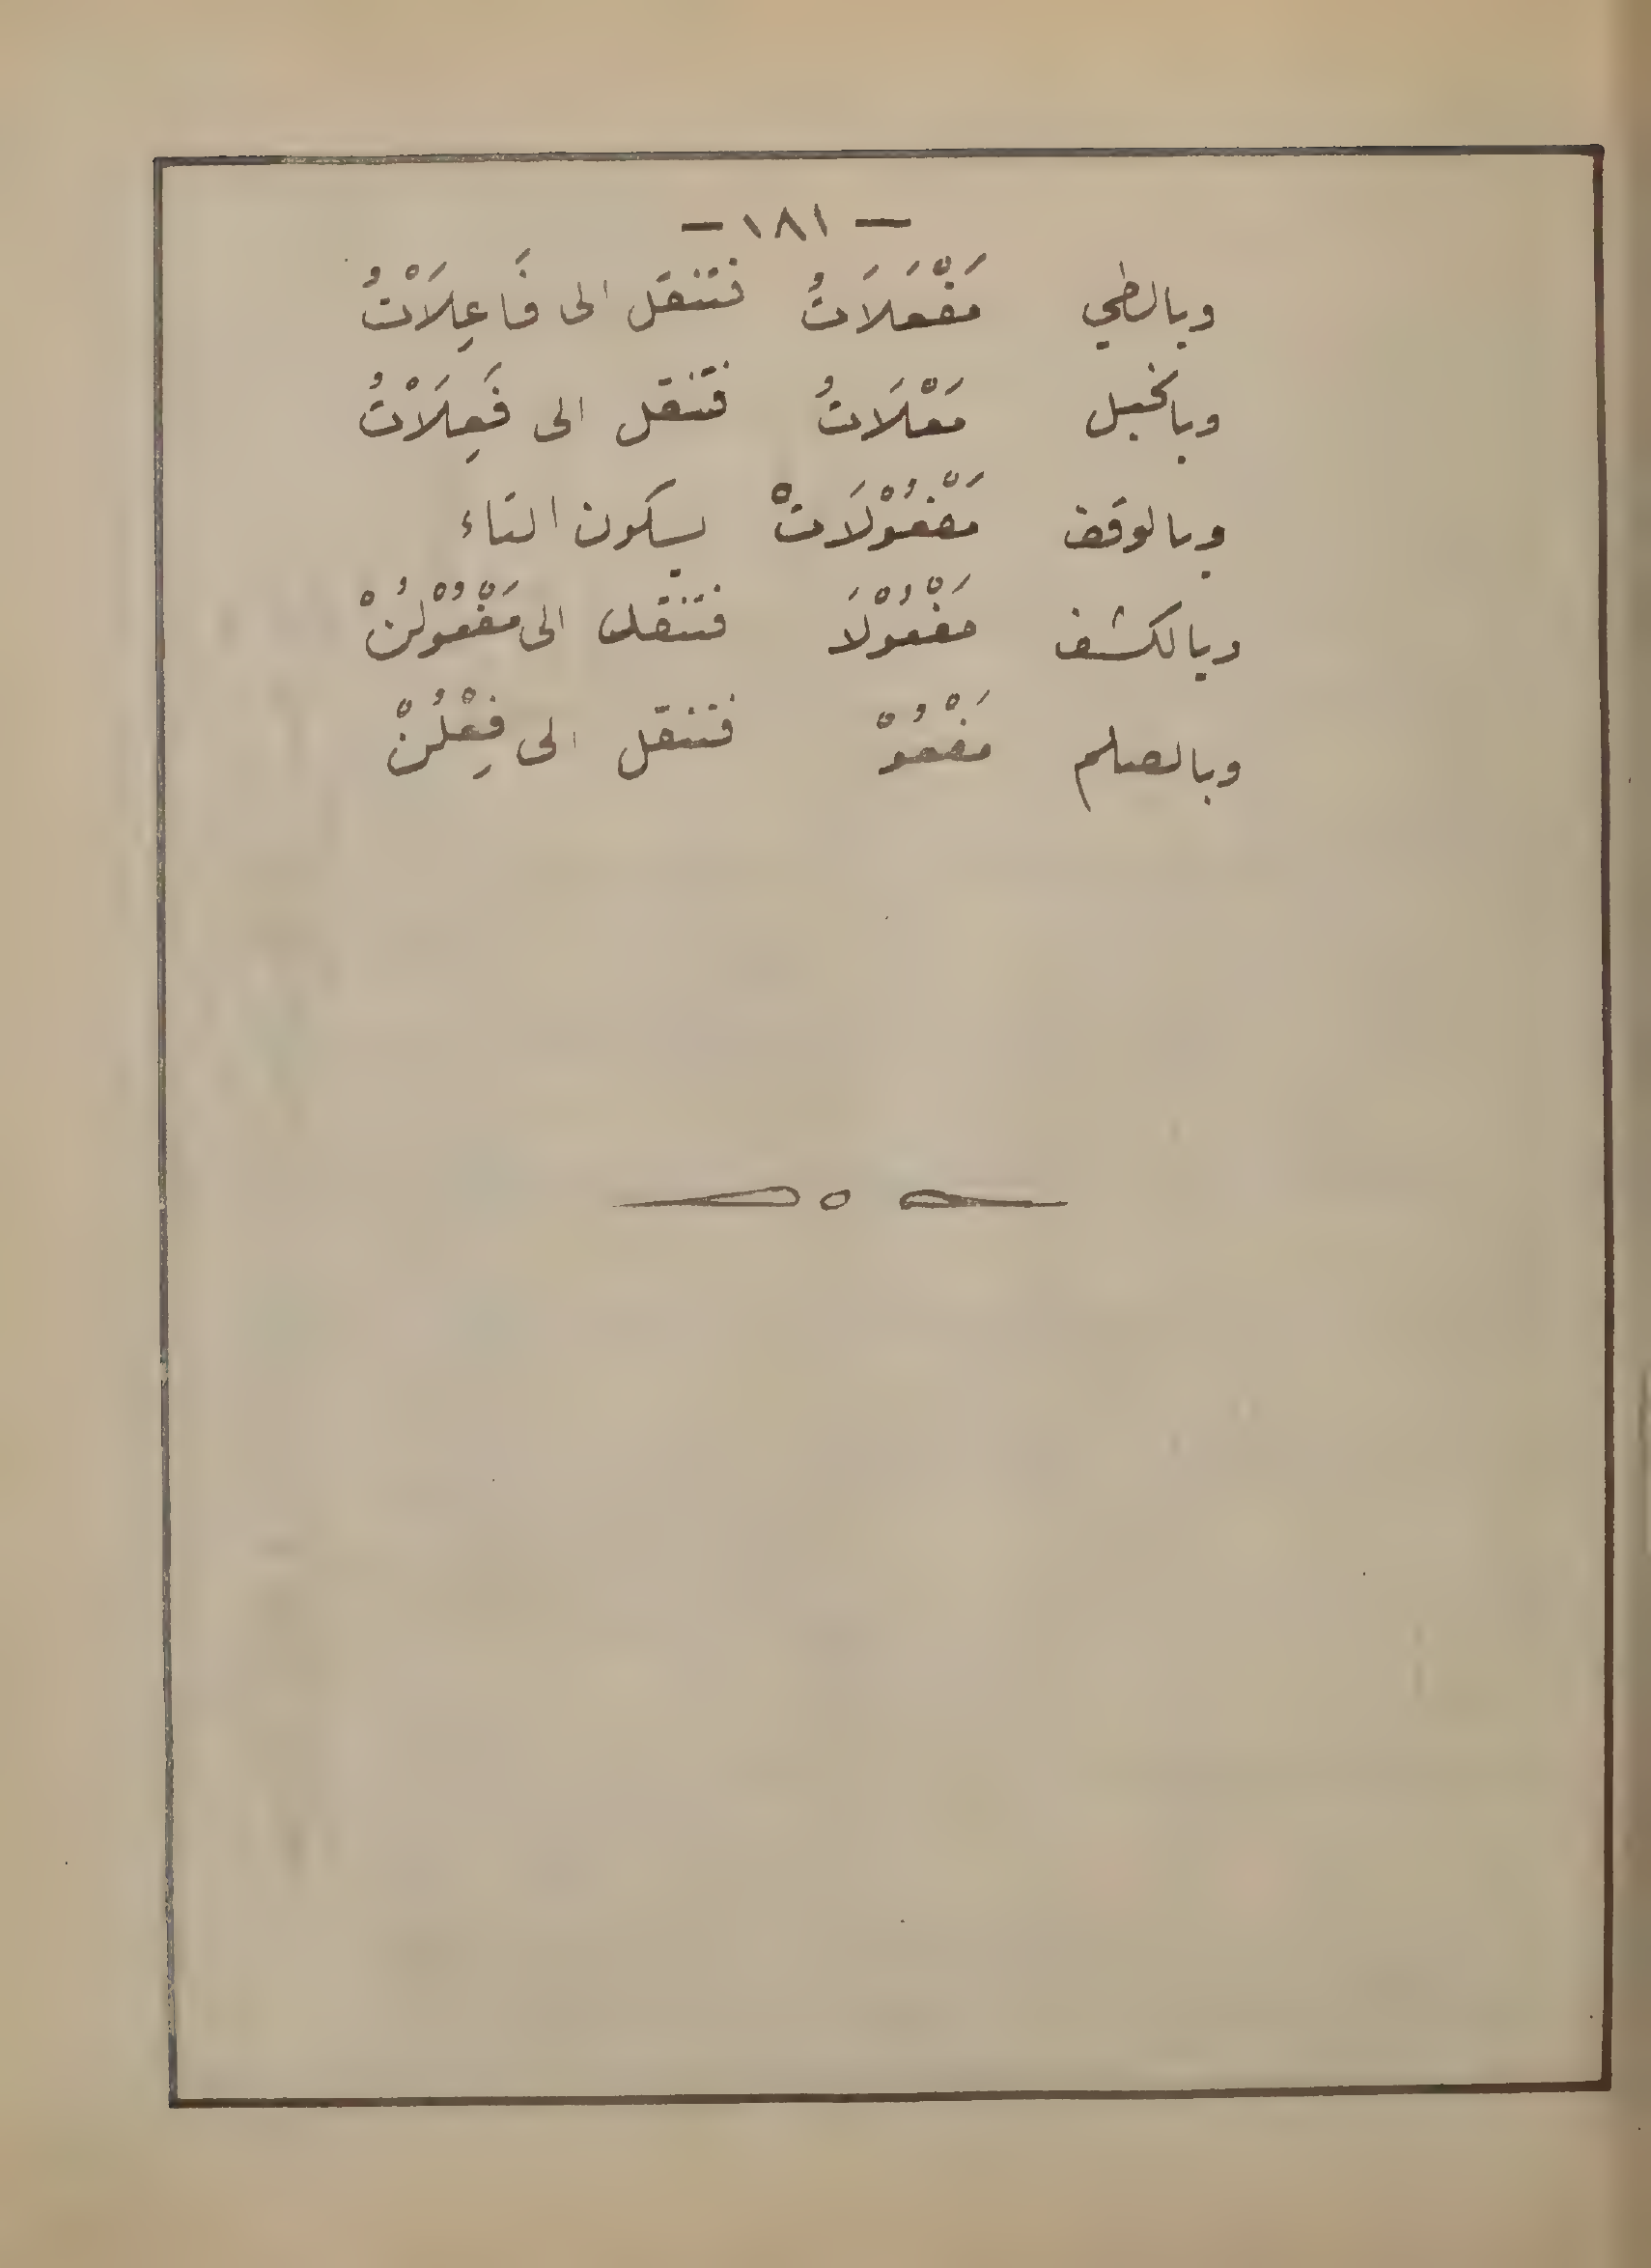 — ١٨١ —
وبالطي مَفْعَلَاتُ فتنقل الى فَاعِلَاْتُ
وبالخبل مَعْلَاتُ فتنقل الى فَعِلَاْتُ
وبالوقف مَفْعُوْلَاتْ بسكون التاء
وبالكشف مَفْعُوْلَا فتنقل الى مَفْعُوْلُنْ
وبالصلم مَفْعُوْ فتنقل الى فِعْلُنْ